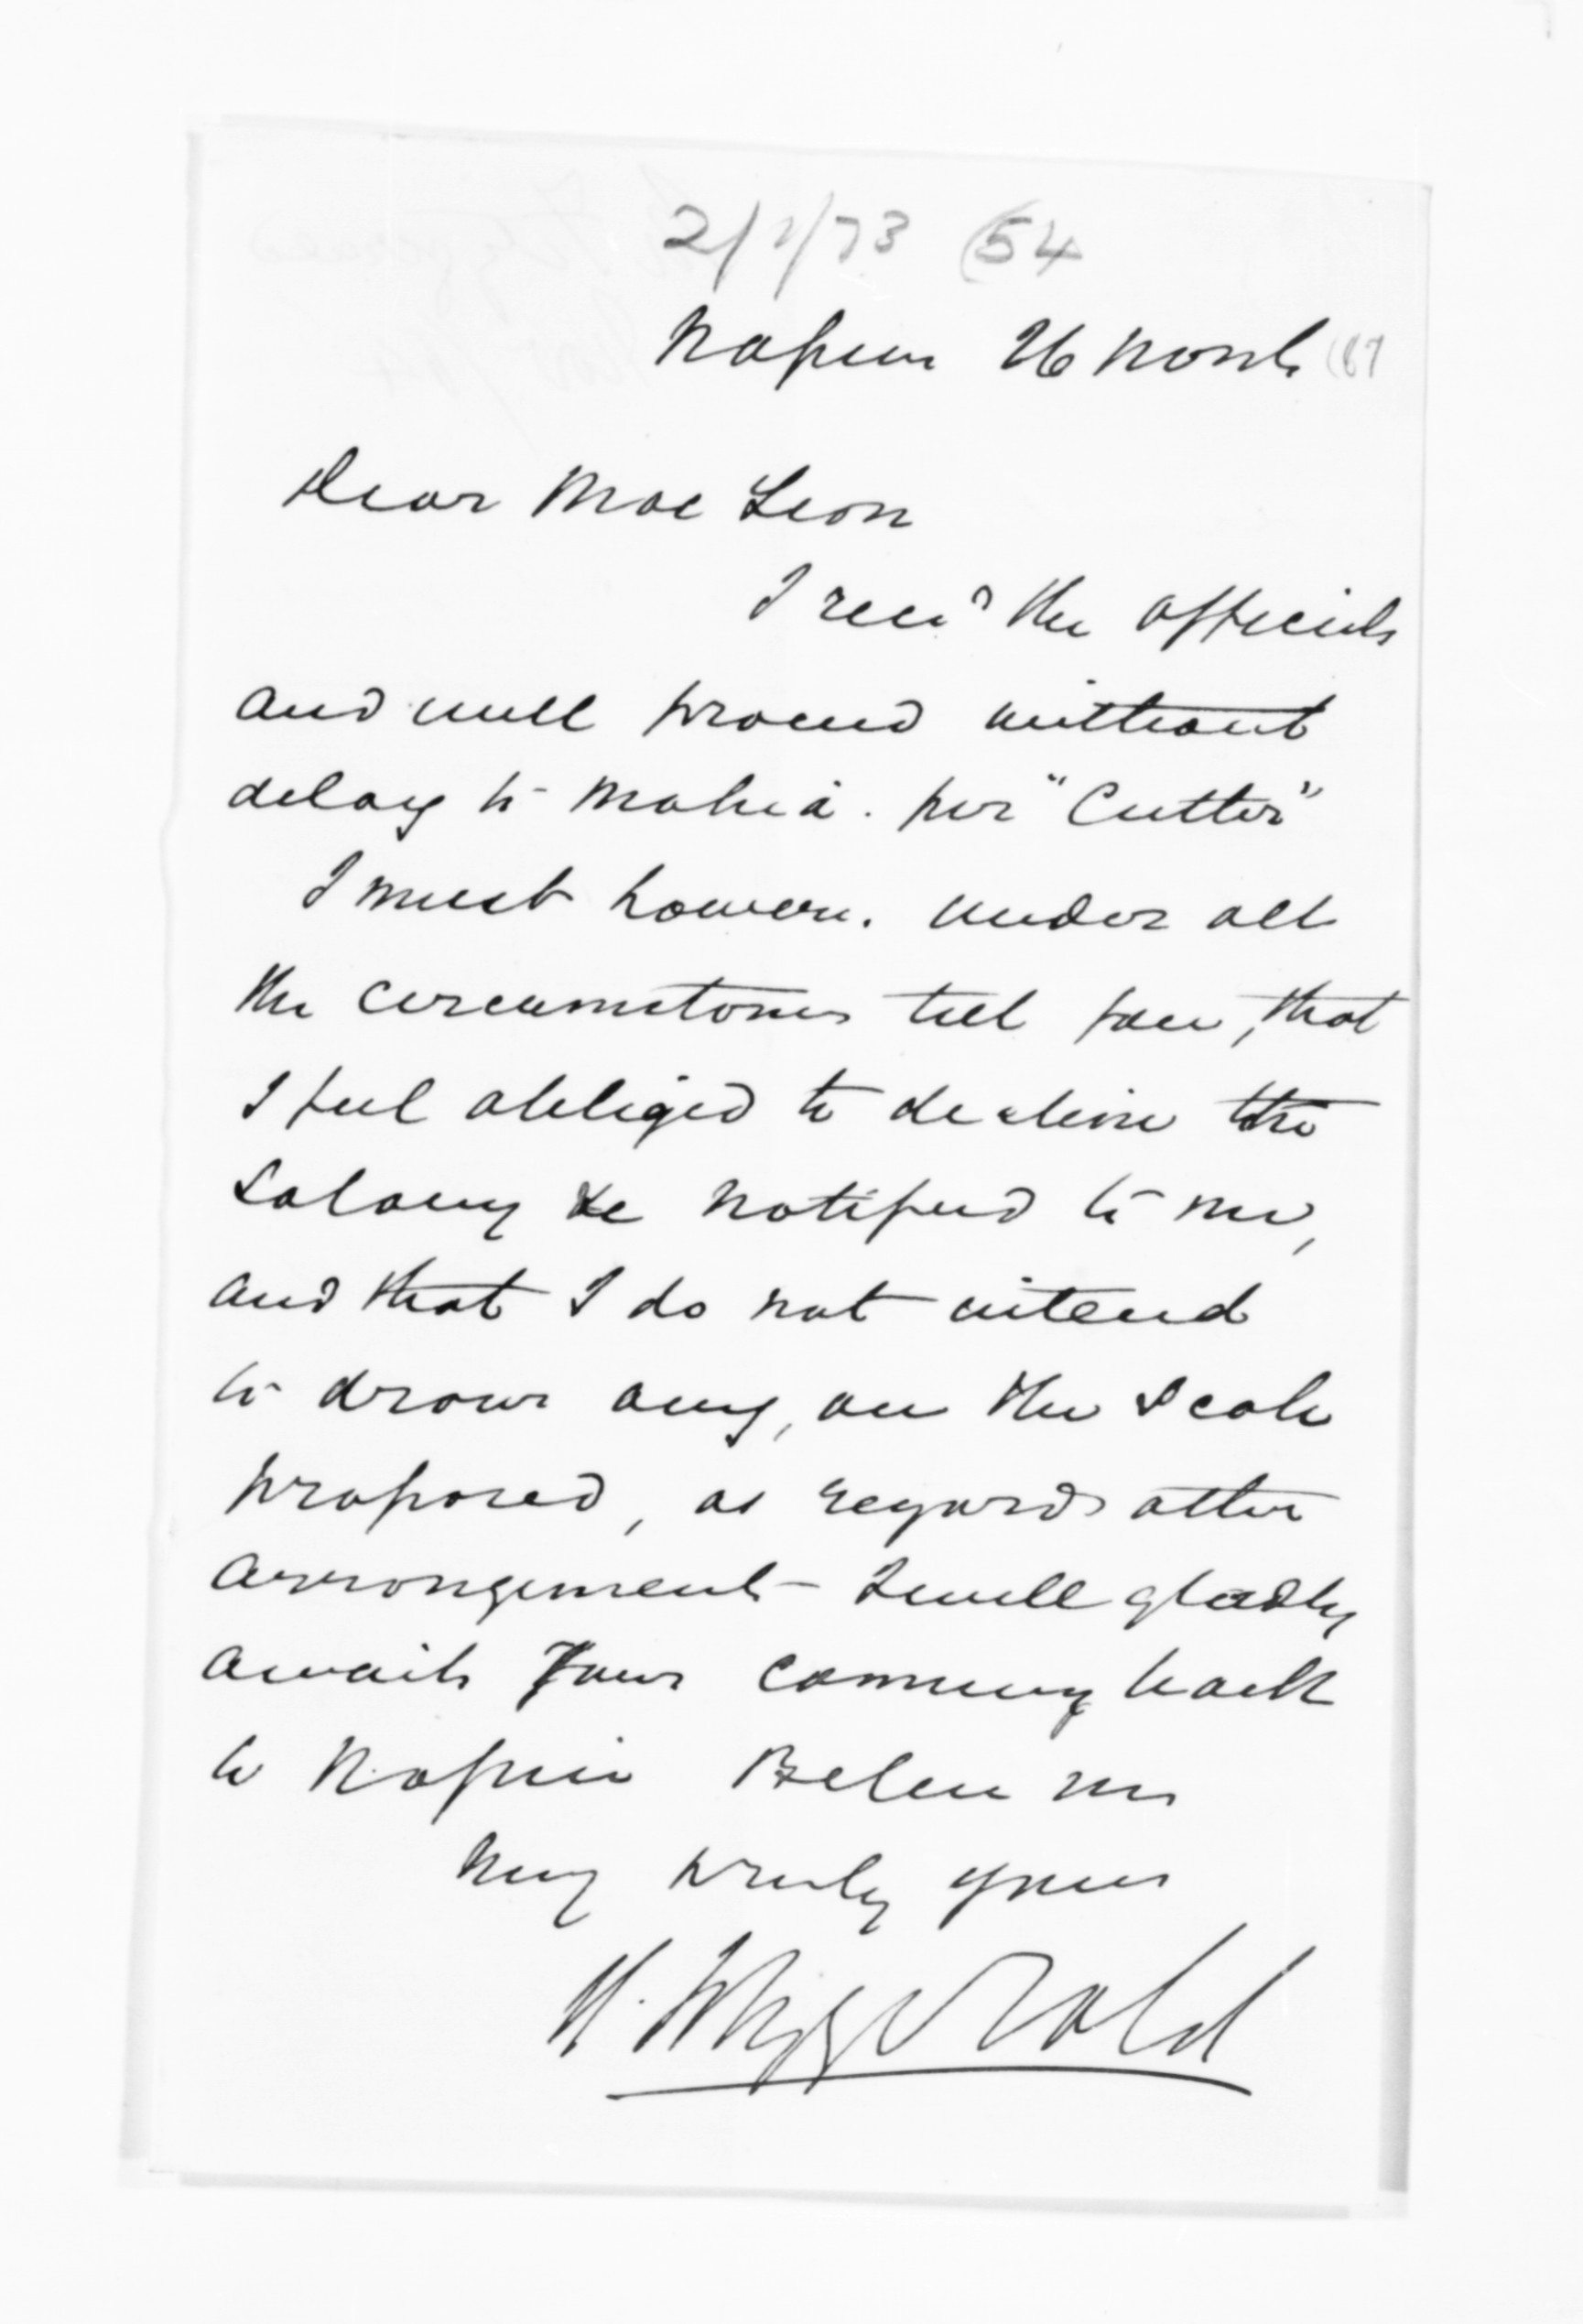 2/1/73 (54
Napier 26 Novb (67
Dear Mac Lean
I recd the officials
and will proceed without
delay to Mahia. per "Cutter"
I must however. under all
the circumstances tell you, that
I feel obliged to decline the
Salary &c notified to me,
and that I do not intend
to draw any, on the Scale
proposed, as regards other
arrangements I will gladly
await Your coming back
to Napier Believe me
Very truly yours
FitzGerald